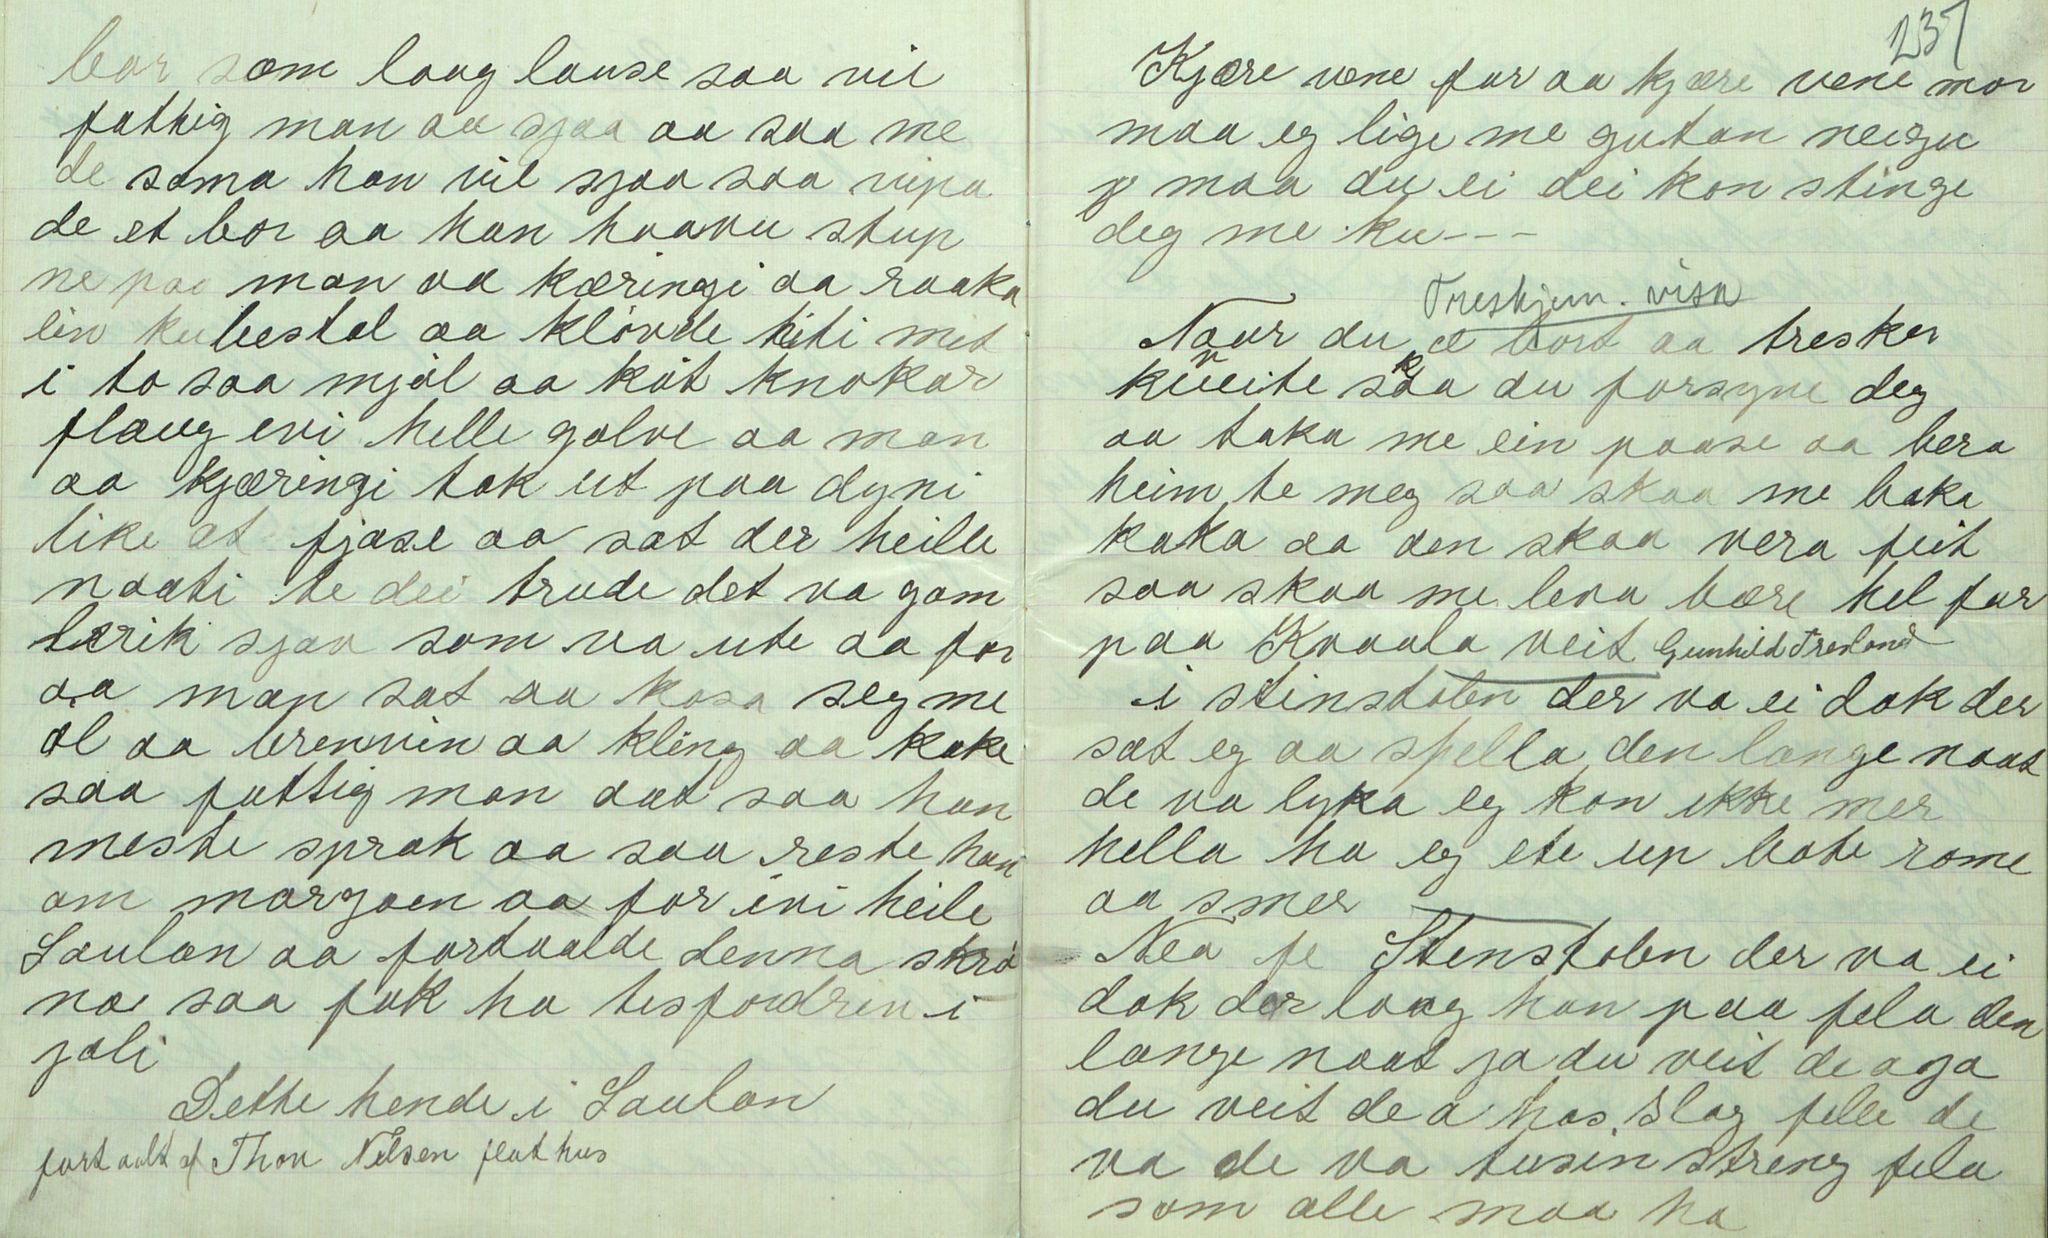 bor som laag lause saa vil
fathig man aa sjaa aa saa me
de sama han vil sjaa saa vipa
de et bor aa han haavu stup
ne paa man aa kæringi aa raaka
ein kubestol aa klövde hiti mit
i to saa mjöl aa köt knokar
flaug evi helle golve aa man
aa kjæringi tok ut paa dyni
like at fjøse aa sat der heille
naati te dei trude det va gam
lærik sjøv som va ute aa for
aa man sat aa kosa seg me
öl aa brenvin aa kling aa kake
saa fattig man aat saa han
meste sprak aa saa reste han
om morgoen aa for ivi heile
Laulan aa fortaalde denna skrö
na saa fæk ha tisfordren i
joli
Dette hende i Laulan
fortaalt af Thon Nilsen flathus
237
Kjære vene far aa kjære vene mor
maa eg lige me gutan neigu
maa du ei dei kon stinge
deg me ku---
Treskjun. visa
Naar du æ bort aa tresker
kveite skaa du forsyne deg
aa taka me ein paase aa bera
heim te meg saa skaa me baka
kaka aa den skaa vera feit
saa skaa me leva bære hel far
paa Kvaala veit Gunhild Træland
i stinstolen der va ei dok der
sat eg aa spella den lange naat
de va lyka eg kon ikke mer
hella ha eg ete up bote rome
aa smer
Nea fe Stenstolen der va ei
dok der laag han paa fela den
lange naat ja du veit de aga
du veit de a has slag felle de
va de va tusin streng fela
som alle maa ha